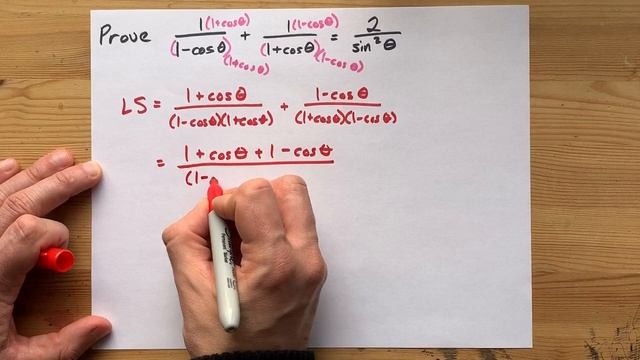 Prove 1(1+cosθ)/(1-cosθ)(1+cosθ) + 1(1-cosθ)/(1+cosθ)(1-cosθ) = 2/sin²θ
LS = 1+cosθ/(1-cosθ)(1+cosθ) + 1-cosθ/(1+cosθ)(1-cosθ)
= 1+cosθ+1-cosθ/(1-